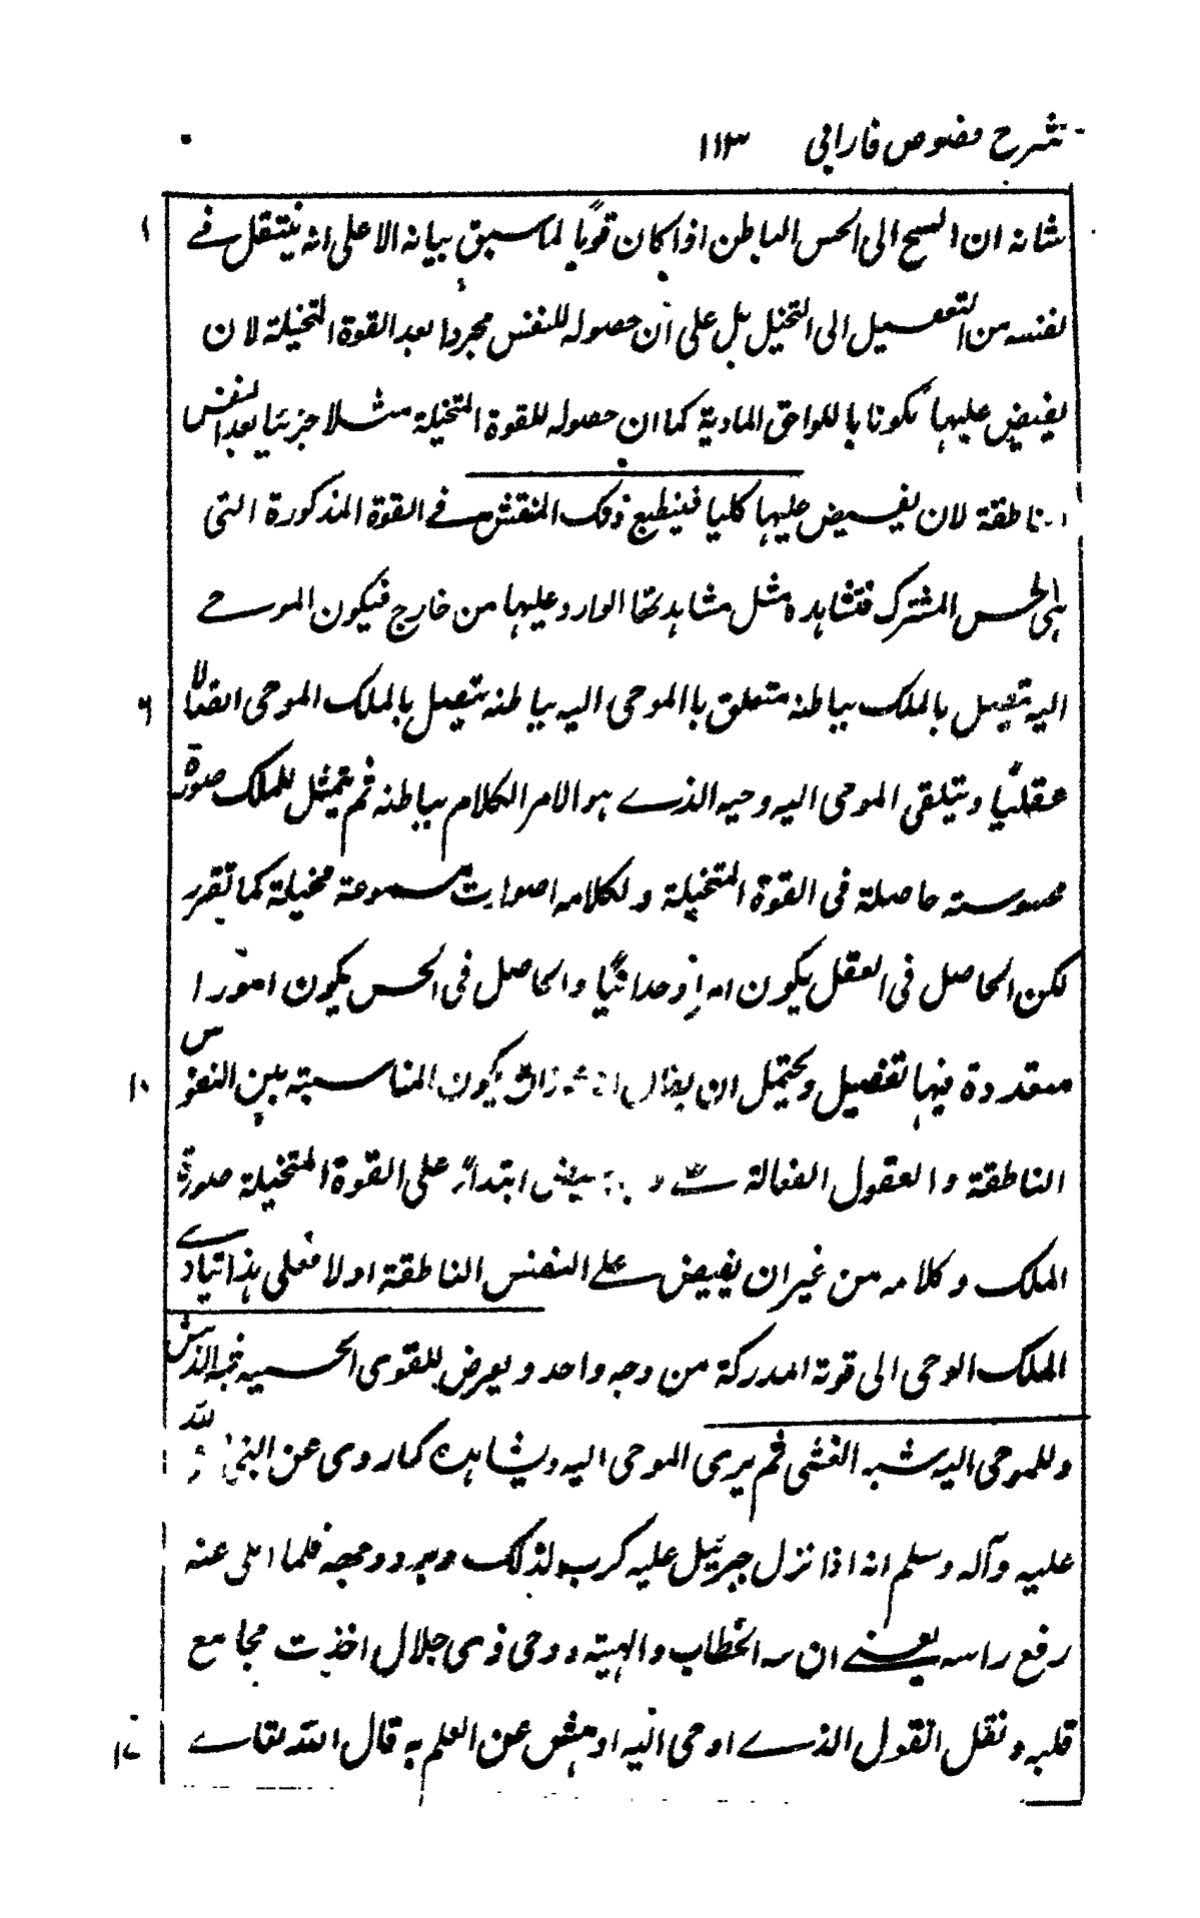 شرح فصوص فارابي ١١٣
١ شانه ان يسيح الى الحس الباطن اذا كان قويا لما سبق بيانه الا على انه ينتقل في
نفسه من التعقل الى التخيل بل على ان حصوله للنفس مجردا بعد القوة المتخيلة لان
يفيض عليها مكونا باللواحق المادية كما ان حصوله للقوة المتخيلة مثلا جزئيا بعد النفس
الناطقة لان يفيض عليها كليا فينطبع ذلك المنقش في القوة المذكورة التى
هى الحس المشترك فتشاهده مثل مشاهدتها الوارد عليها من خارج فيكون الموحى
٦ اليه يتصل بالملك بباطنه متعلق باالموحى اليه بباطنه يتصل بالملك الموحى اتصالا
عقليا و يتلقى الموحى اليه وحيه الذے هو الامر الكلام بباطنه ثم يتمثل للملك صورة
محسوسته حاصلة فى القوة المتخيلة و لكلامه اصوات مسموعة مخيلة كما تقرر
لكن الحاصل فى العقل يكون امرا وحدانيا والحاصل فى الحس يكون امورا
١٠ متعددة فيها تفصيل و يحتمل ان يقال يكون المناسبته بين النفوس
الناطقة و العقول الفعالة ابتداء على القوة المتخيلة صورة
الملك و كلامه من غير ان يفيض على النفس الناطقة اولا فعلى هذا يتادے
الملك الوحى الى قوته المدركة من وجه واحد و يعرض للقوى الحسيه شبه الدهش
وللموحى اليه شبه الغشى ثم يرى الموحى اليه ويشاهده كما روى عن النبى صلى الله
عليه وآله وسلم انه اذا نزل جبرئيل عليه كرب لذلك و تربد وجهه فلما اجلى عنه
رفع راسه يعنے ان الخطاب و الهيبته و وحى ذى جلال اخذت مجامع
١٧ قلبه و نقل القول الذے اوحى اليه ادهش عن العلم به قال الله تعالے